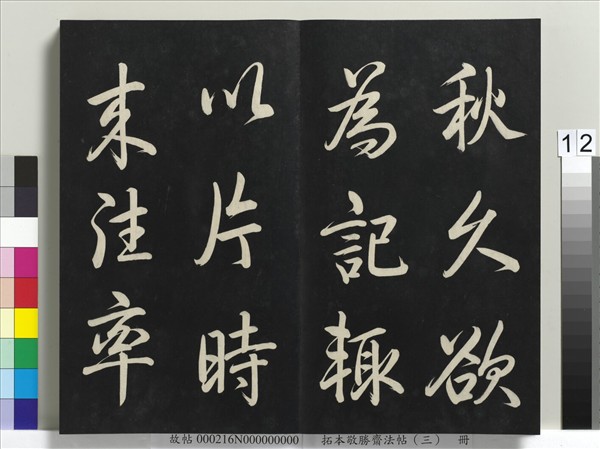 秋久欲
為記輙
以片時
来往率
12
故帖 000216N000000000 拓本敬勝齋法帖（三） 冊